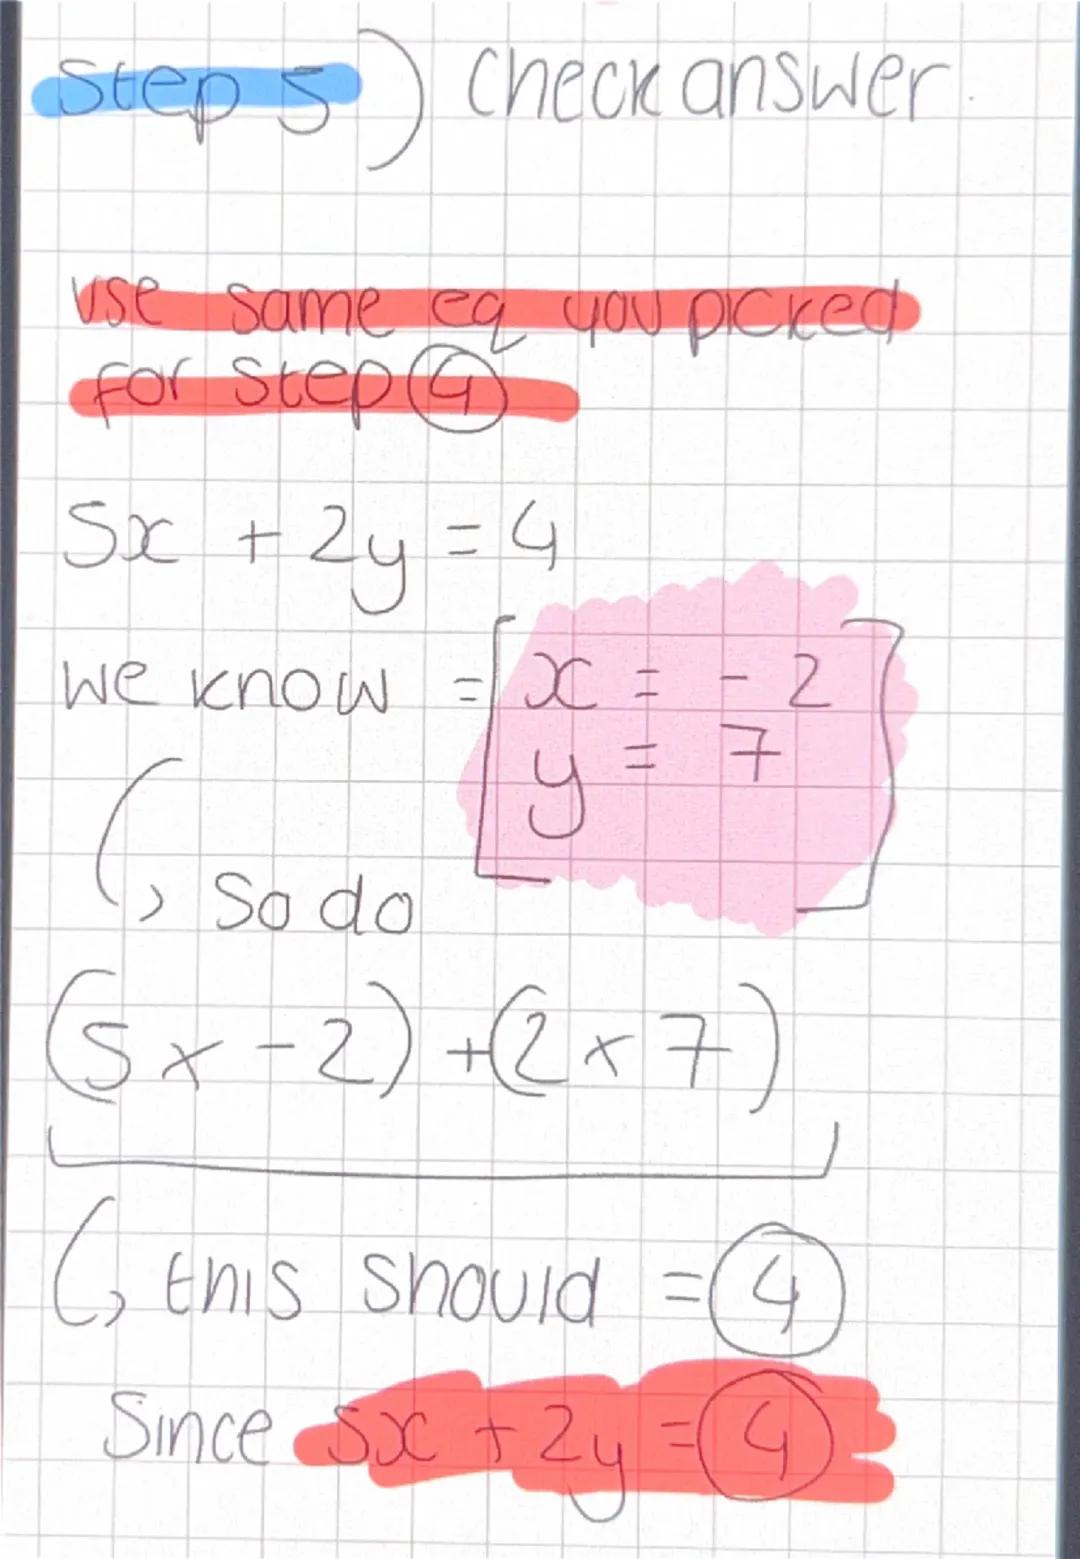 Step 5) Check answer.
Use same eq you picked
for step ④
5x + 2y = 4
We know = [x = -2
y = 7]
↳ So do
(5 x -2) + (2 x 7)
↳ this should = ④
Since 5x + 2y = ④